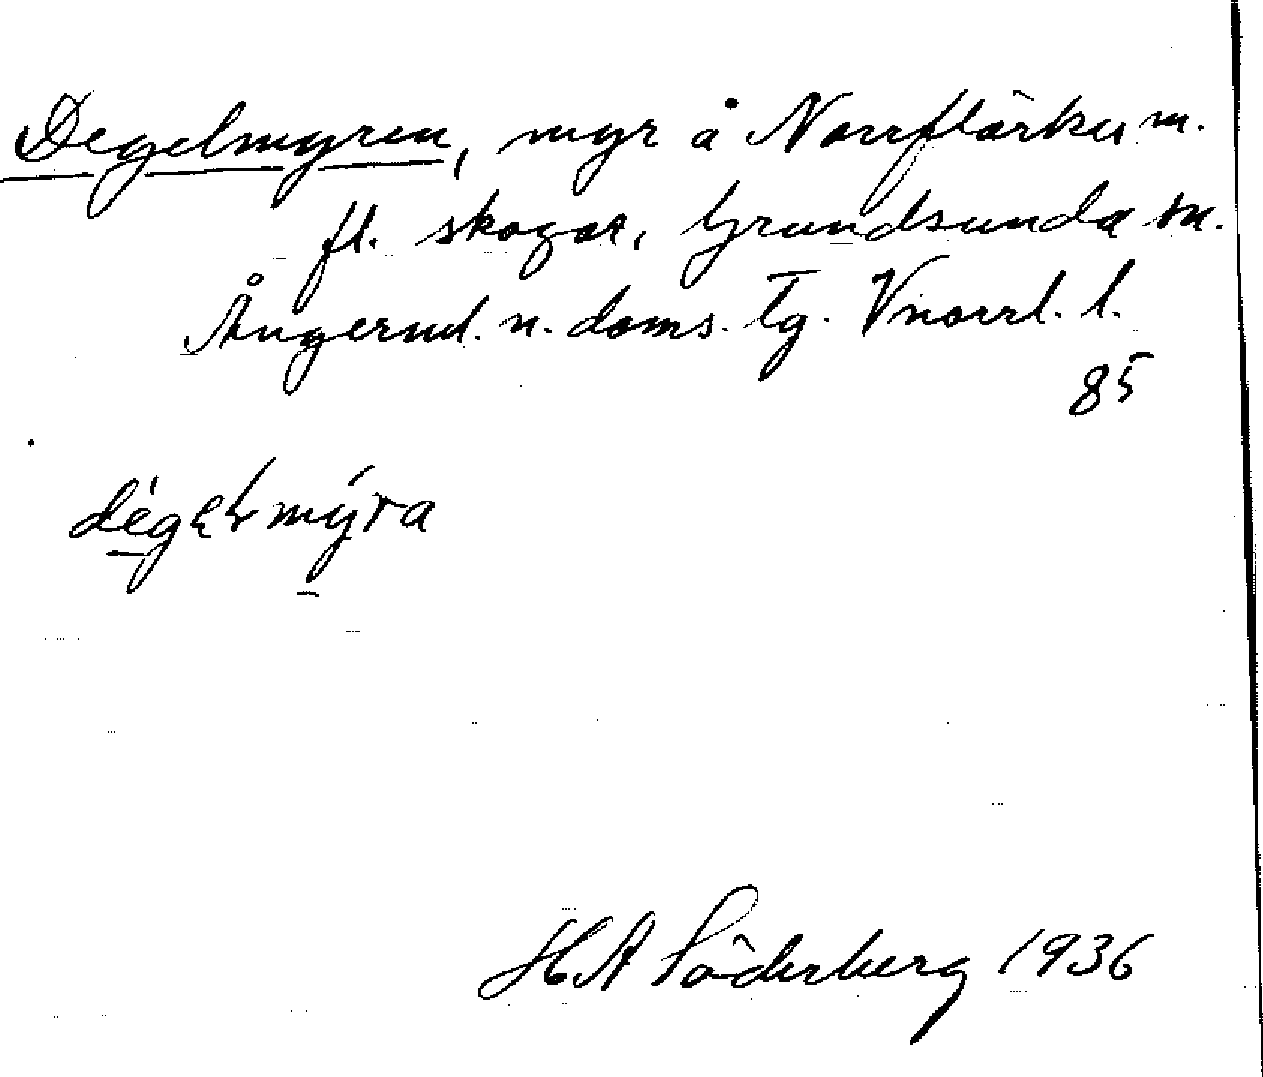 Degelmyren, myr å Norrflärke m.
fl. skogar, Grundsunda sn.
Ångerml. n. doms. tg. Vnorrl. l.
85
HA Söderberg 1936